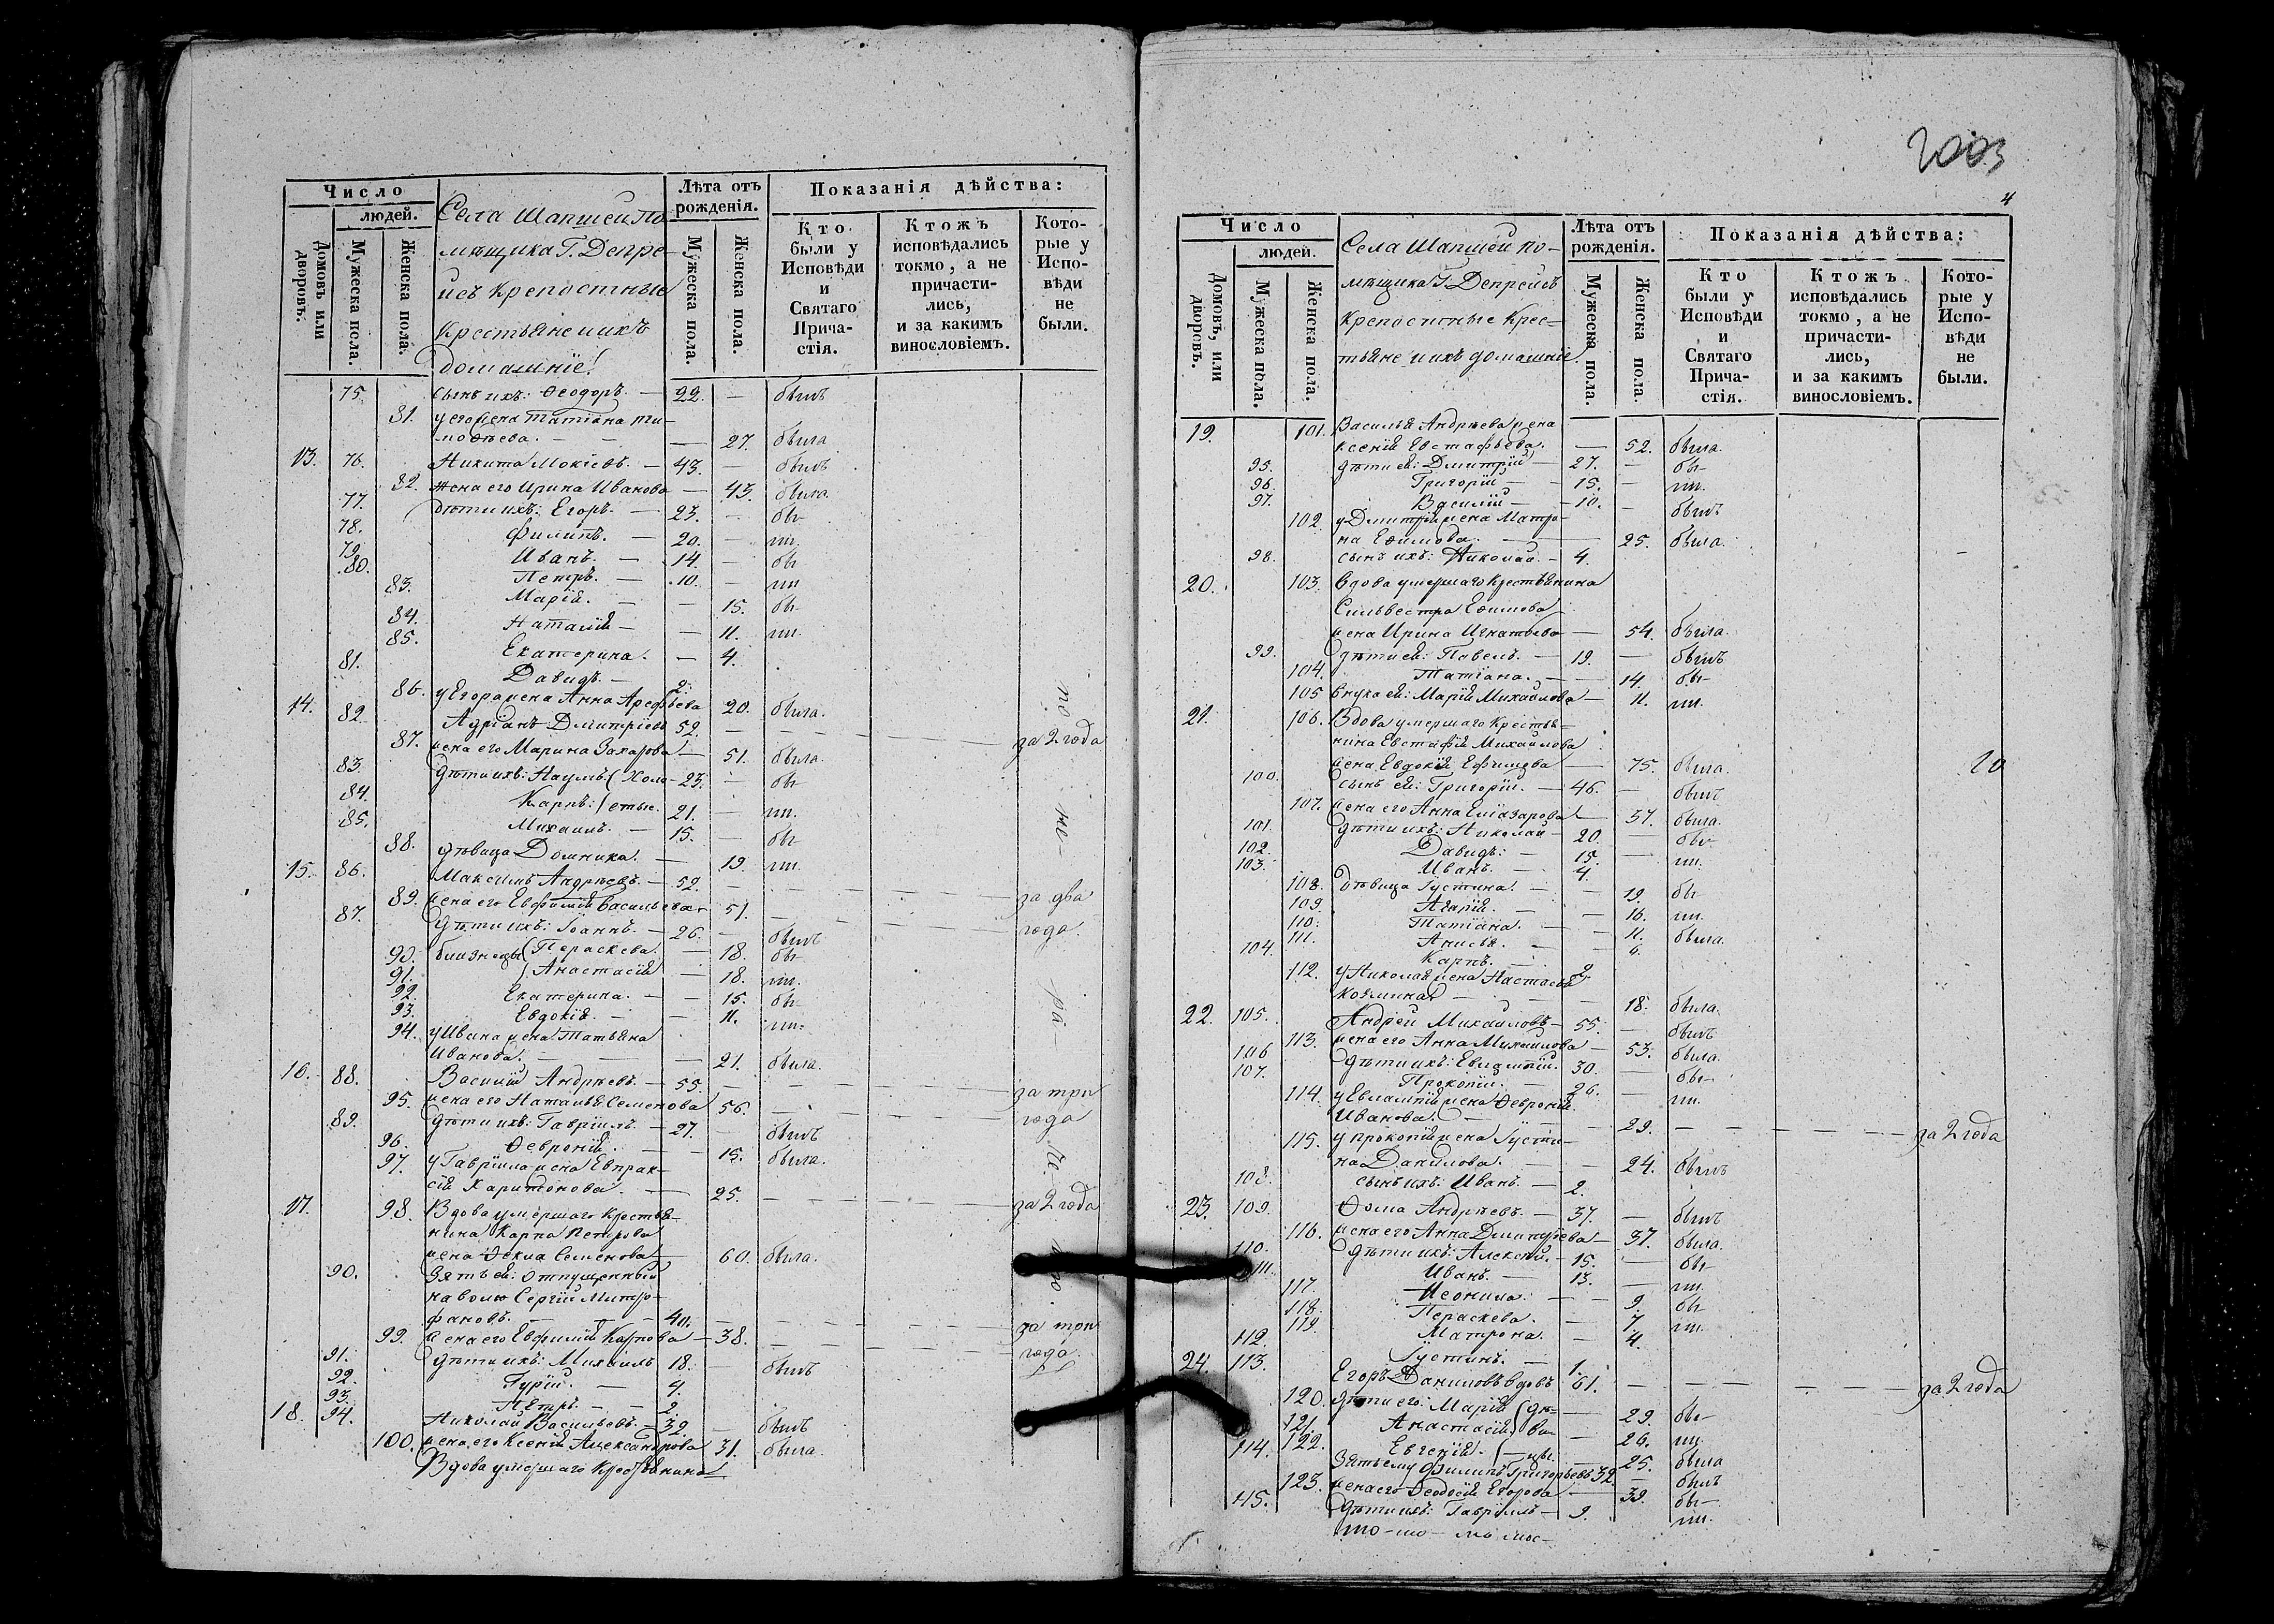 Число
людей.
Домовъ или дворовъ.
Мужеска пола.
Женска пола.
Села Шапшей по-
мѣщика Г. Депре-
исъ крепостные
крестьяне и ихъ
домашніе.
Лѣта отъ рожденія.
Мужеска пола.
Женска пола.
Показанія дѣйства:
Кто были у Исповѣди и Святаго Прича- стія.
Ктожъ исповѣдались токмо, а не причасти- лись, и за какимъ винословіемъ.
Кото- рые у Испо- вѣди не были.
75. сынъ ихъ: Ѳеодоръ. — 22. — былъ
81. у его жена Татіана Ти-
моѳѣева. — — — 27. была
13. 76. Никита Мокіевъ. — 43. — былъ
82. жена его Ирина Иванова — 43. была
77. дѣти ихъ: Егоръ. — 23. — бы-
78. Филипъ. — 20. — ли.
79. Иванъ. — 14. — бы
80. Петръ. — 10. — ли
83. Марія. — — 15. бы-
84. Наталія — — 11. ли.
85. Екатерина. — 4.
81. Давидъ. — 2.
86. у Егора жена Анна Арефьева 20. была.
14. 82. Адріанъ Дмитріевъ 52. — — — за 2 года
87. жена его Марина Захарова — 51. была.
83. дѣти ихъ: Наумъ (холо- 23. — бы
84. Карпъ: (стые. 21. — ли.
85. Михаилъ. — 15. — бы
88. дѣвица Домника. — 19. ли.
15. 86. Максимъ Андрѣевъ. — 52. — — — за два
89. жена его Евфимія Васильева — 51. — — — года.
87. дѣти ихъ: Іоаннъ. — 26. — былъ
90. близнецы (Параскева. — 18. бы
91. (Анастасія — 18. ли.
92. Екатерина. — — 15. бы
93. Евдокія. — — 11. ли.
94. у Ивана жена Татьяна
Иванова. — — 21. была.
16. 88. Василій Андрѣевъ. — 55. — — — за три
95. жена его Наталья Семенова 56. — — — года
89. дѣти ихъ: Гавріилъ. — 27. — былъ
96. Ѳевронія. — — 15. была.
97. у Гавріила жена Евпрак-
сія Харитонова. — 25. — — — за 2 года
17. 98. Вдова умершаго крестья-
нина Карпа Петрова
жена Ѳекла Семенова — 60. была.
90. Зять ей: отпущенный
на волю Сергій Митро-
фановъ. — — — 40. — — — за три
99. жена его Евфимія Карпова — 38. — — — года.
91. дѣти ихъ: Михаилъ 18. — былъ
92. Гурій. — 4.
93. Петръ. — — 2.
18. 94. Николай Васильевъ. — 32. — былъ
100. жена его Ксенія Александрова 31. была.
Вдова умершаго крестьянина
по не ра
2003
4
Число
людей.
Домовъ, или дворовъ.
Мужеска пола.
Женска пола.
Села Шапшей по-
мѣщика Г. Депреисъ
крепостные крес-
тьяне и ихъ домашніе.
Лѣта отъ рожденія.
Мужеска пола.
Женска пола.
Показанія дѣйства:
Кто были у Исповѣди и Святаго Прича- стія.
Ктожъ исповѣдались токмо, а не причасти- лись, и за какимъ винословіемъ.
Кото- рые у Испо- вѣди не были.
19. 101. Василья Андрѣева жена
Ксенія Евстафьева. — 52. была.
95. дѣти ей: Дмитрій — 27. — бы-
96. Григорій — — 15. — ли.
97. Василій — — 10. — былъ
102. у Дмитрія жена Матро-
на Ефимова. — 25. была.
98. сынъ ихъ: Николай. — 4.
20. 103. Вдова умершаго крестьянина
Сильвестра Ефимова
жена Ирина Игнатьева — 54. была.
99. дѣти ей: Павелъ. — 19. — былъ
104. Татіана. — — 14. бы-
105 внука ей: Марія Михайлова — 11. ли.
21. 106. Вдова умершаго крестья-
нина Евстафія Михайлова
жена Евдокія Ефимова — 75. была.
100. сынъ ей: Григорій. — 46. — былъ
107. жена его Анна Еліазарова — 37. была.
101. дѣти ихъ: Николай — 20. — бы-
102. Давидъ: — 15. — ли.
103. Иванъ. — 4.
108. дѣвица Іустина. — — 19. бы
109. Агафія. — — 16. ли.
110. Татіана. — — 11. была.
111. Анисья. — — 6.
104. Карпъ. — 2.
112. у Николая жена Настасья
Козмина — — 18. была.
22. 105. Андрей Михайловъ — 55. — былъ
113. жена его Анна Михайлова — 53. была.
106 дѣти ихъ: Евлампій. 30. — бы-
107. Прокопій. — 26. — ли.
114. у Евлампія жена Ѳевронія
Иванова. — — — 29. — — — за 2 года
115. у Прокопія жена Іусти-
на Данилова. — — 24. былъ
108. сынъ ихъ: Иванъ. — 2.
23. 109. Ѳома Андрѣевъ. — 37. — былъ
116. жена его Анна Дмитріева — 37. была.
110. дѣти ихъ: Алексѣй. — 15. — бы
111. Иванъ. — 13. — ли.
117. Неонила: — — 9. бы
118. Параскева. — 7. ли.
119. Матрона. — 4.
112. Іустинъ. — 1.
24. 113. Егоръ Даниловъ вдовъ 61. — — — за 2 года
120. дѣти его: Марія (дѣ- — 29. бы-
121. Анастасія (ви- — 26. ли.
122. Евгенія. (—цы. — 25. была
114. Зять ему Филипъ Григорьевъ 32. — былъ
123. жена его Ѳеодосія Егорова — 39. бы-
115. дѣти ихъ: Гавріилъ — 9. ли.